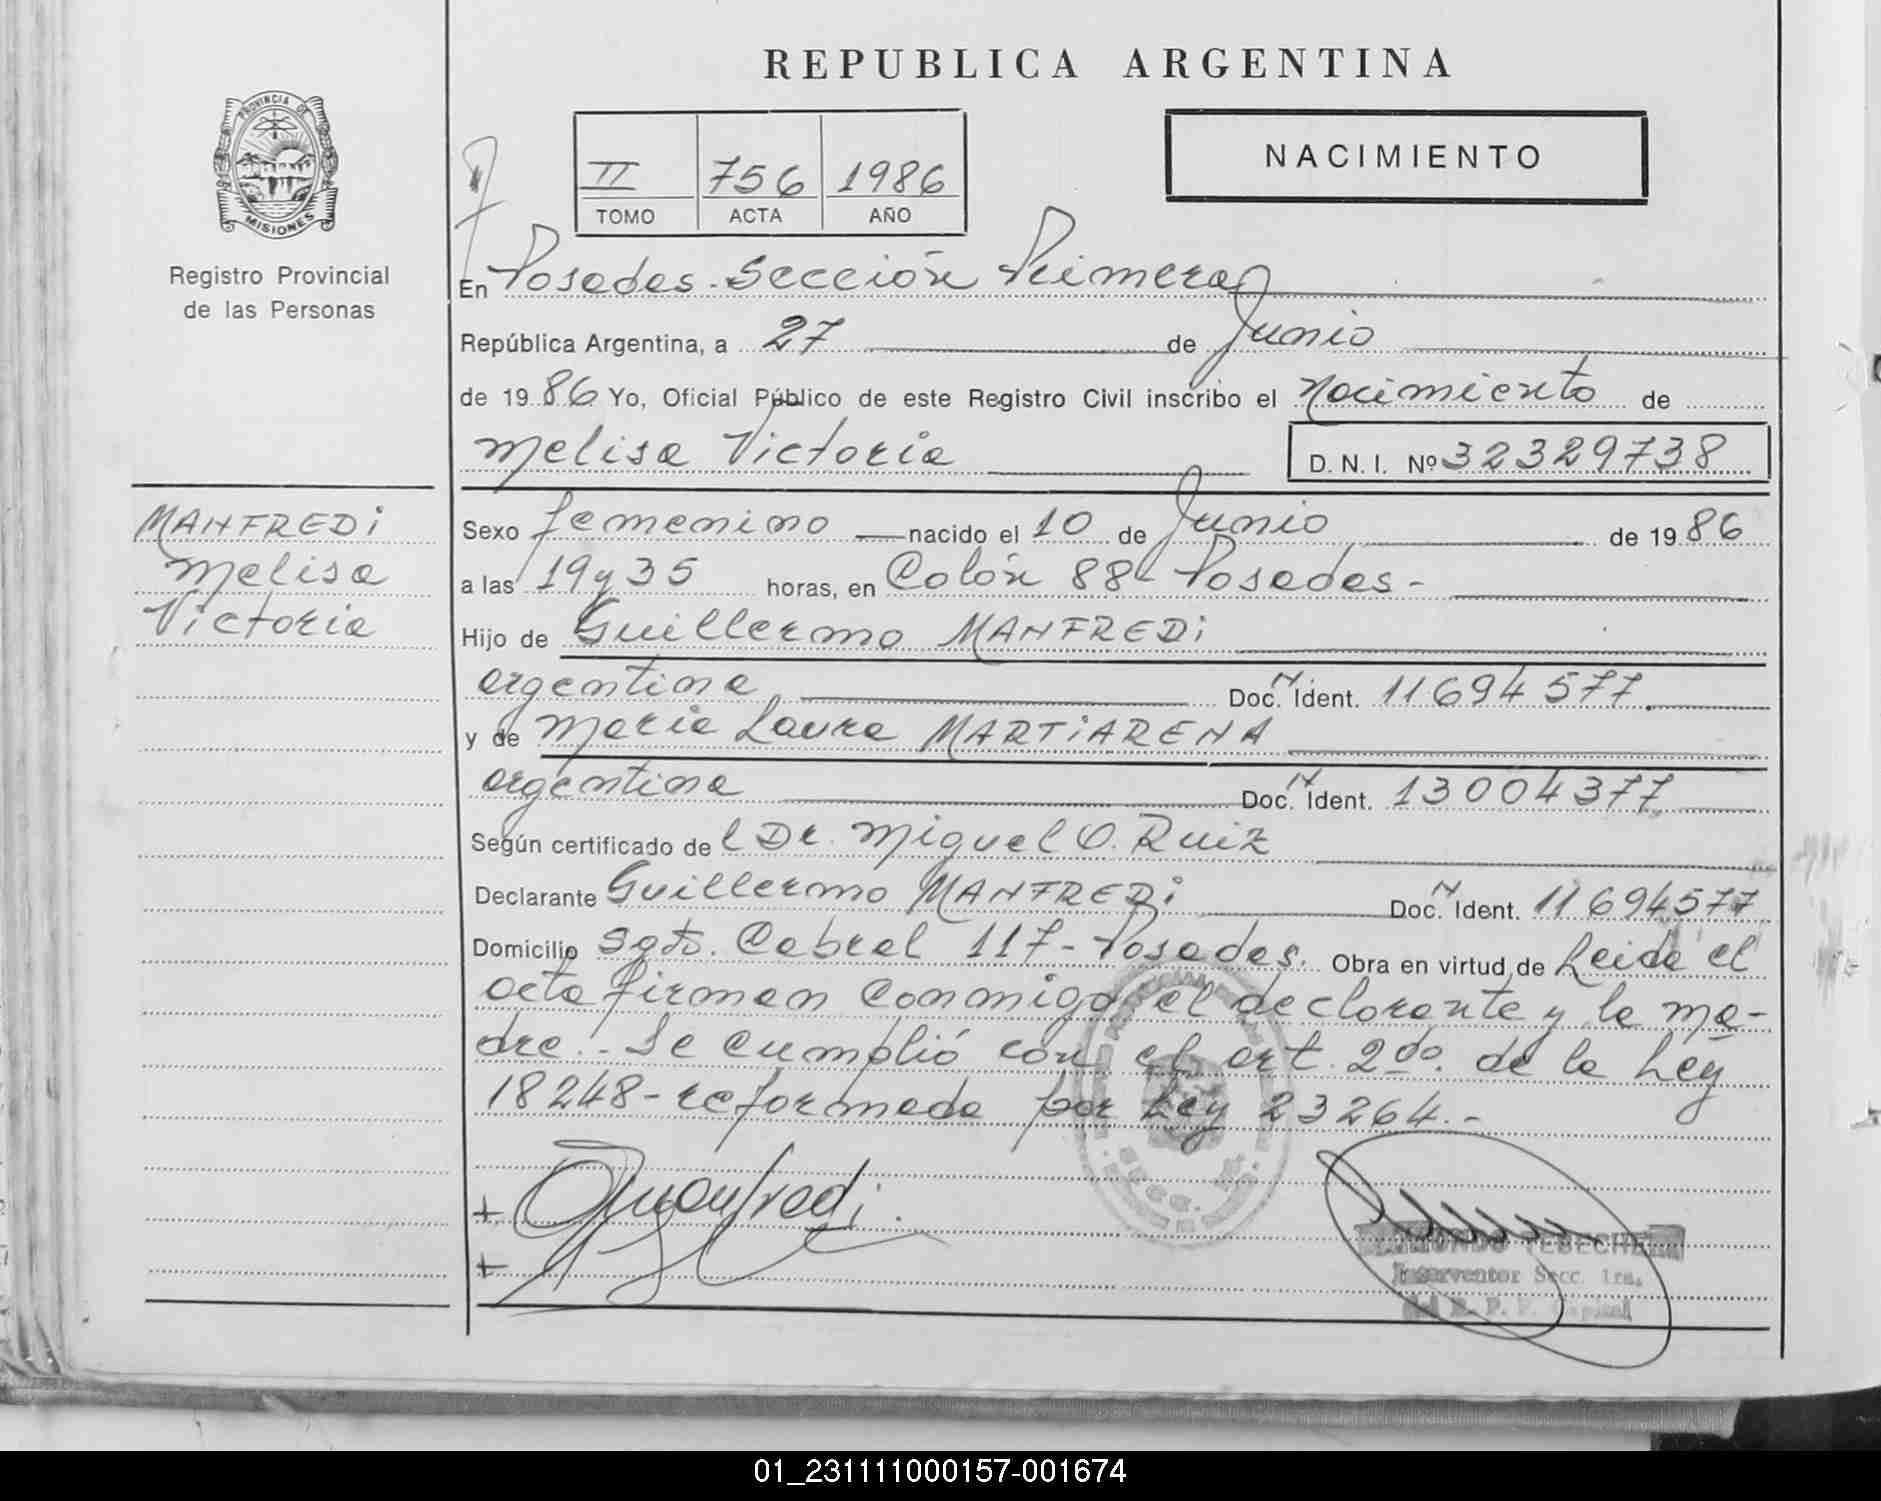 REPUBLICA ARGENTINA
PROVINCIA DE
MISIONES
Registro Provincial
de las Personas
II 756 1986
TOMO ACTA AÑO
NACIMIENTO
En Posadas - Sección Primera
República Argentina, a 27 de Junio
de 1986 Yo, Oficial Público de este Registro Civil inscribo el Nacimiento de
Melisa Victoria D. N. I. Nº 32329738
MANFREDi
Melisa
Victoria
Sexo femenino nacido el 10 de Junio de 1986
a las 19 y 35 horas, en Colón 88 - Posadas -
Hijo de Guillermo MANFREDi
argentina Doc. N Ident. 11694577.
y de Maria Laura MARTiARENA
argentina Doc. N Ident. 13004377
Según certificado del Dr. Miguel O. Ruiz
Declarante Guillermo MANFREDi Doc. N Ident. 11694577
Domicilio Sgto. Cabral 117 - Posadas. Obra en virtud de Leida el
acta firman conmigo el declarante y la ma-
dre. - Se cumplió con el art. 2do. de la Ley
18248 - reformada por Ley 23264. -
+ Manfredi.
+
TEBECHE
Interventor Secc. 1ra.
del R. P. P. Capital
01_231111000157-001674